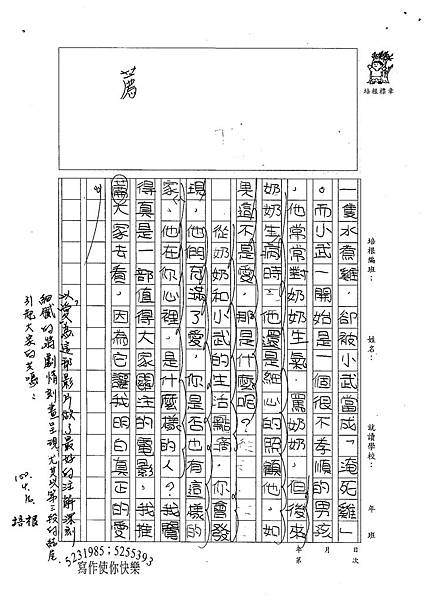 培根標章
培根編班：
姓名：
就讀學校：
年 班
年 月 日
第 次
薦
一隻水煮雞，卻被小武當成「淹死雞」
。而小武一開始是一個很不孝順的男孩
，他常常對奶奶生氣，罵奶奶，但後來
奶奶生病時，他還是細心的照顧他，如
果這不是愛，那是什麼呢？
從奶奶和小武的生活點滴，你會發
現，他們充滿了愛，你是否也有這樣的
家，他在你心裡，是什麼樣的人？我覺
得真是一部值得大家關注的電影，我推
薦大家去看，因為它讓我明白真正的愛
。
以愛為這部影片做了最好的註解，深刻
細膩的將劇情刻畫呈現，尤其以第三段的結尾
引起大家的共鳴！
培根
5231985；5255393
寫作使你快樂